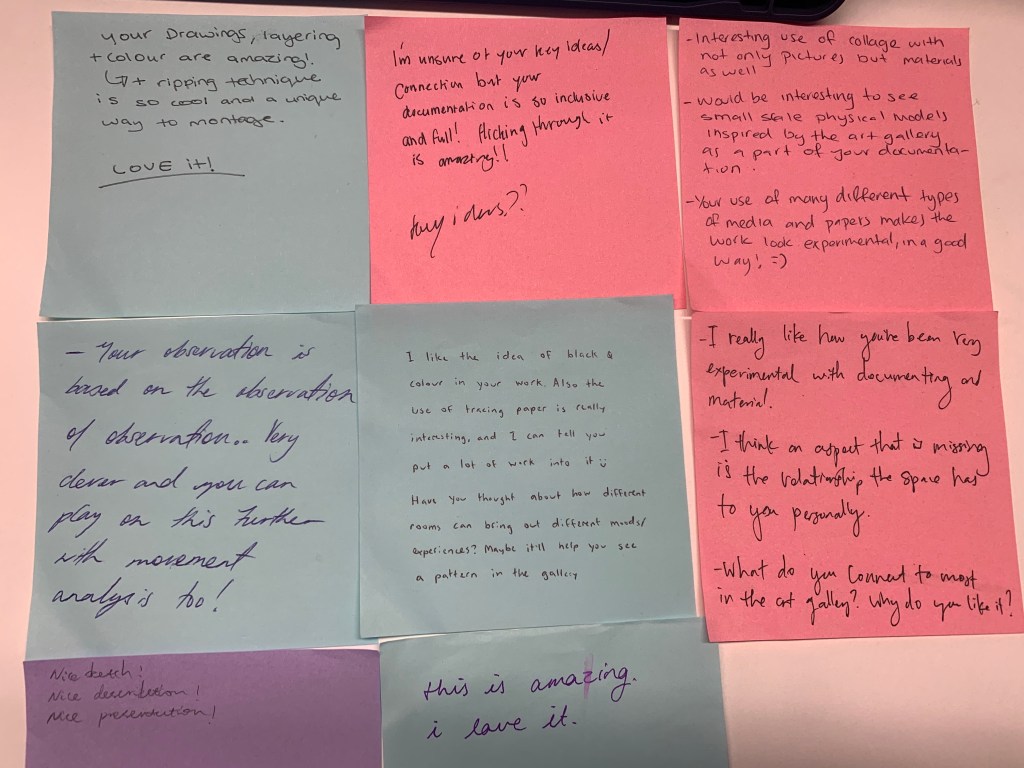 your Drawings, layering
+ colour are amazing!
↳ + ripping technique
is so cool and a unique
way to montage.
LOVE it!
I'm unsure of your key ideas/
Connection but your
documentation is so inclusive
and full! flicking through it
is amazing!!
key ideas??
- Interesting use of collage with
not only pictures but materials
as well
- Would be interesting to see
small scale physical models
inspired by the art gallery
as a part of your documenta-
tion.
- Your use of many different types
of media and papers makes the
work look experimental, in a good
way! =)
- Your observation is
based on the observation
of observation.. Very
clever and you can
play on this further
with movement
analysis too!
I like the idea of black &
colour in your work. Also the
use of tracing paper is really
interesting, and I can tell you
put a lot of work into it ü
Have you thought about how different
rooms can bring out different moods/
experiences? Maybe it'll help you see
a pattern in the gallery
- I really like how you've been very
experimental with documenting and
material.
- I think an aspect that is missing
is the relationship the space has
to you personally.
- What do you connect to most
in the art gallery? Why do you like it?
Nice sketch!
Nice description!
Nice presentation!
this is amazing.
i love it.